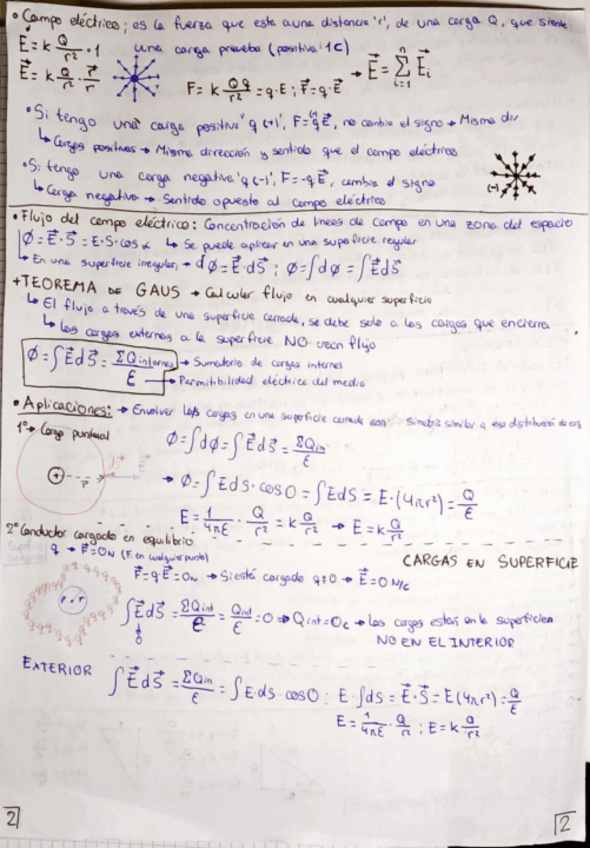 • Campo eléctrico; es la fuerza que esta a una distancia 'r', de una carga Q, que siente
E = k Q/r² · 1 una carga prueba (positiva 1C)
E⃗ = k Q/r² · r⃗/r
F = k Qq/r² = q·E ; F⃗ = q·E⃗ → E⃗ = Σ(i=1, n) E⃗i
• Si tengo una carga positiva 'q (+)', F⃗ = (+)qE⃗, no cambia el signo → Misma dir
↳ Cargas positivas → Misma dirección y sentido que el campo eléctrico
• Si tengo una carga negativa 'q (-)', F = -qE⃗, cambia el signo
↳ Carga negativa → Sentido opuesto al campo eléctrico
(-)
• Flujo del campo eléctrico: Concentración de lineas de campo en una zona del espacio
Ø = E⃗·S⃗ = E·S·cos α ↳ Se puede aplicar en una superficie regular
↳ En una superficie irregular → dØ = E⃗·dS⃗ ; Ø = ∫dØ = ∫E⃗dS⃗
+ TEOREMA DE GAUS → Calcular flujo en cualquier superficie
↳ El flujo a través de una superficie cerrada, se debe solo a las cargas que encierra
↳ las cargas externas a la superficie NO crean flujo
Ø = ∫E⃗dS⃗ = ΣQinternas/ε → Sumatorio de cargas internas
→ Permitibilidad eléctrica del medio
• Aplicaciones: → Envolver las cargas en una superficie cerrada con simetría similar a esa distribución de carg
1º → Carga puntual
Ø = ∫dØ = ∫E⃗dS⃗ = ΣQin/ε
→ Ø = ∫EdS·cos0 = ∫EdS = E·(4πr²) = Q/ε
E = 1/4πε · Q/r² = k Q/r² → E = k Q/r²
2º Conductor cargado en equilibrio
q → F⃗ = 0N (F. en cualquier punto)
CARGAS EN SUPERFICIE
F⃗ = q·E⃗ = 0N → Si está cargado q≠0 → E⃗ = 0 N/C
∫E⃗dS⃗ = ΣQint/ε = Qint/ε = 0 ⇒ Qint = 0c → Las cargas están en la superficie
0
NO EN EL INTERIOR
EXTERIOR
∫E⃗dS⃗ = ΣQin/ε = ∫E·dS·cos0 ; E·∫dS = E⃗·S⃗ = E(4πr²) = Q/ε
E = 1/4πε · Q/r² ; E = k Q/r²
2
2